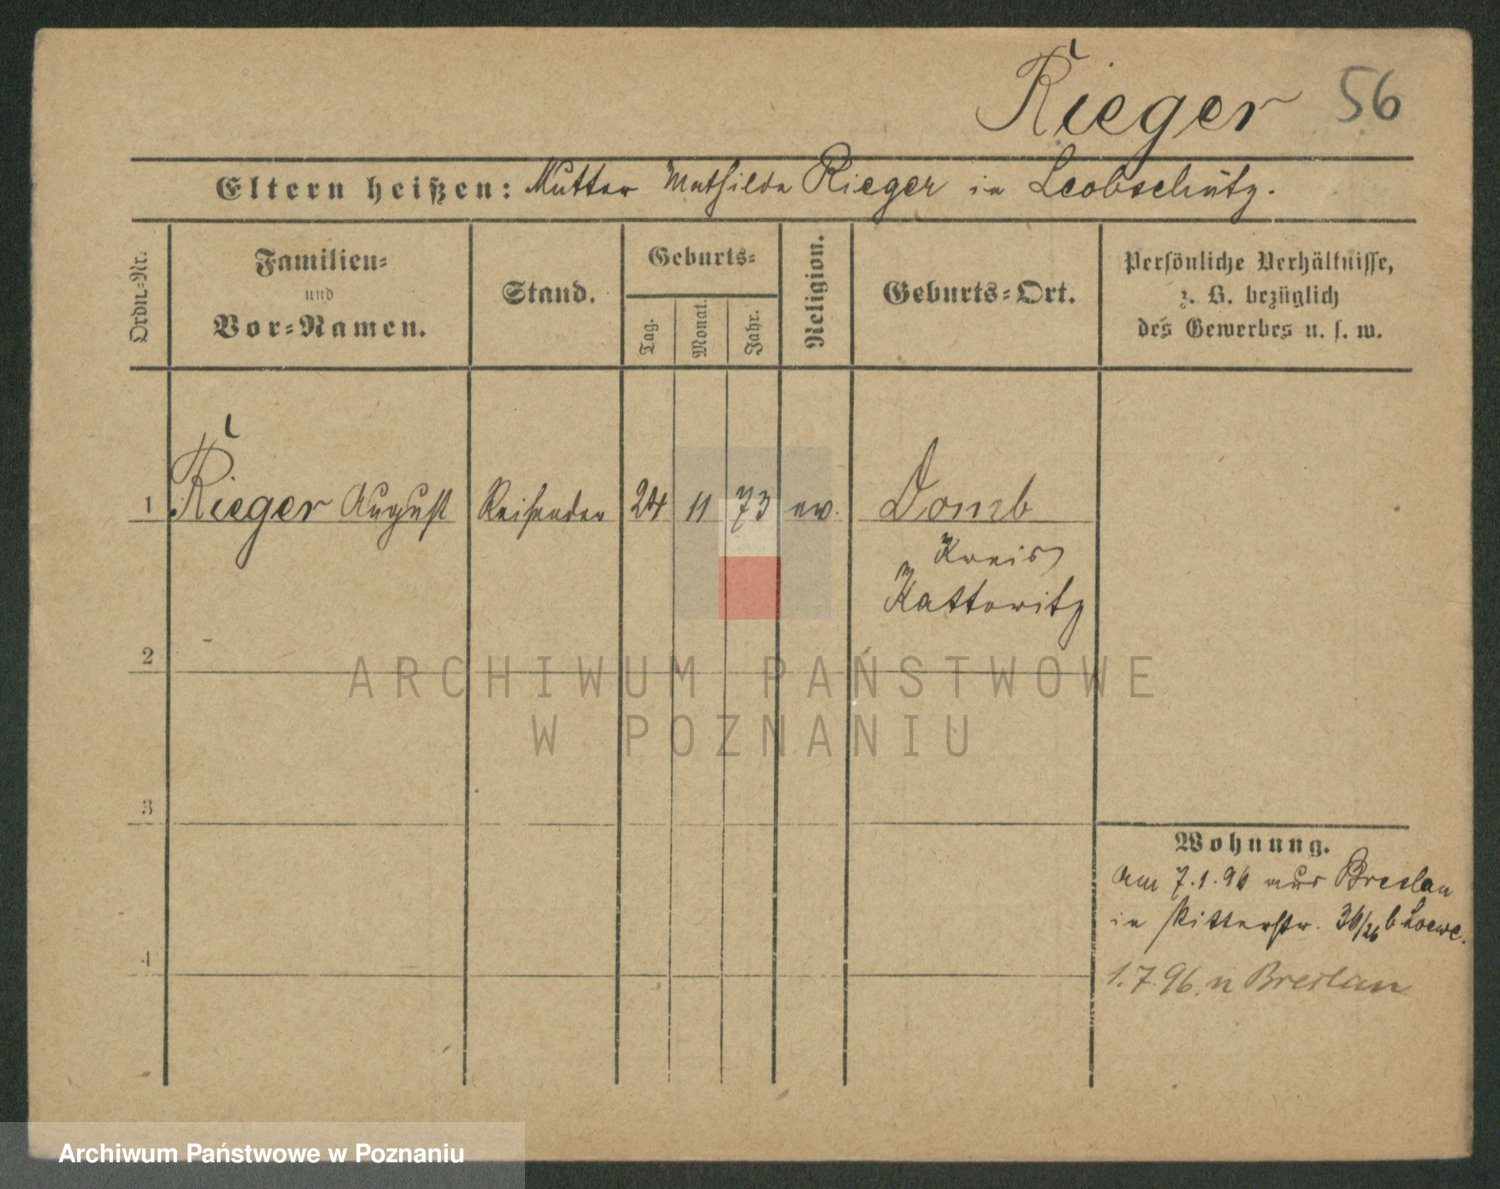 Rieger 56
Eltern heißen: Mutter Mathilde Rieger in Leobschütz.
Ordn.-Nr.
Familien-
und
Vor-Namen.
Stand.
Geburts-
Tag.
Monat.
Jahr.
Religion.
Geburts-Ort.
Persönliche Verhältnisse,
z. B. bezüglich
des Gewerbes u. s. w.
1 Rieger August Reisender 24 11 73 ev. Domb
Kreis
Kattowitz
2
ARCHIWUM PAŃSTWOWE
W POZNANIU
3
Wohnung.
am 7.1.96 aus Breslau
in Ritterstr. 36/26 b Loewe.
4
1.7.96. n Breslau
Archiwum Państwowe w Poznaniu